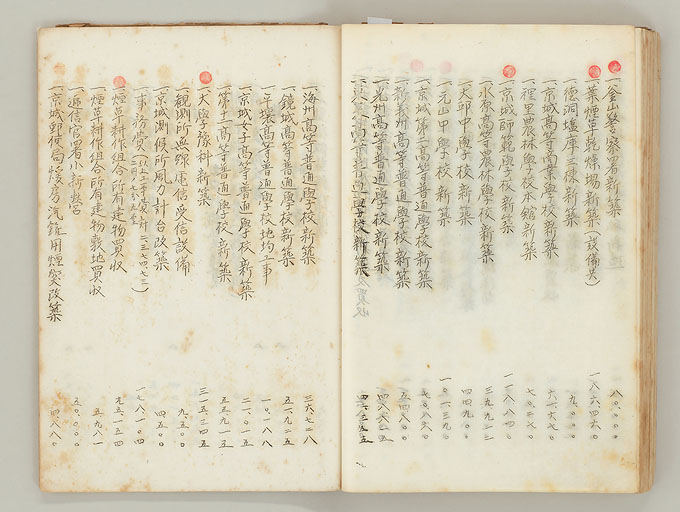 一、金山警察署新築 八〇〇〇〇
一、葉煙草乾燥場新築（設備共） 一八六四六〇
一、徳洞塩庫三棟新築 九〇〇〇
一、京城高等商業學校新築 六一六七〇
一、裡里農林學校本館新築 七〇三七〇
一、京城師範學校新築 一一八八四〇
一、水原高等農林學校新築 三九九三三
一、大邱中學校新築 四四九〇
一、元山中學校新築 一〇一三九〇
一、京城第二高等普通學校新築 七〇八六〇
一、新義州高等普通學校新築 五四八〇〇
一、光州高等普通學校新築 四八六二五
高等普通學校新築
一、海州高等普通學校新築 三六七二八
一、鏡城高等普通學校新築 五一九二五
一、平壤高等普通學校地均工事 一〇一八八
一、京城女子高等普通學校新築 二一〇一五
一、第十一高等普通學校新築 五五九一五
一、大學豫科新築 三一五三四五
一、觀測所無線電信受信設備 九五〇〇
一、京城測候所風力計台改築 四五〇〇
一、事務費 一七八一〇四
一、煙草耕作組合所有建物買収 九五一五四
一、煙草耕作組合所有建物敷地買収 五九八一
一、逓信官署小新営 五〇〇〇〇
一、京城郵便局煖房汽鑵用煙突改築 四八八〇